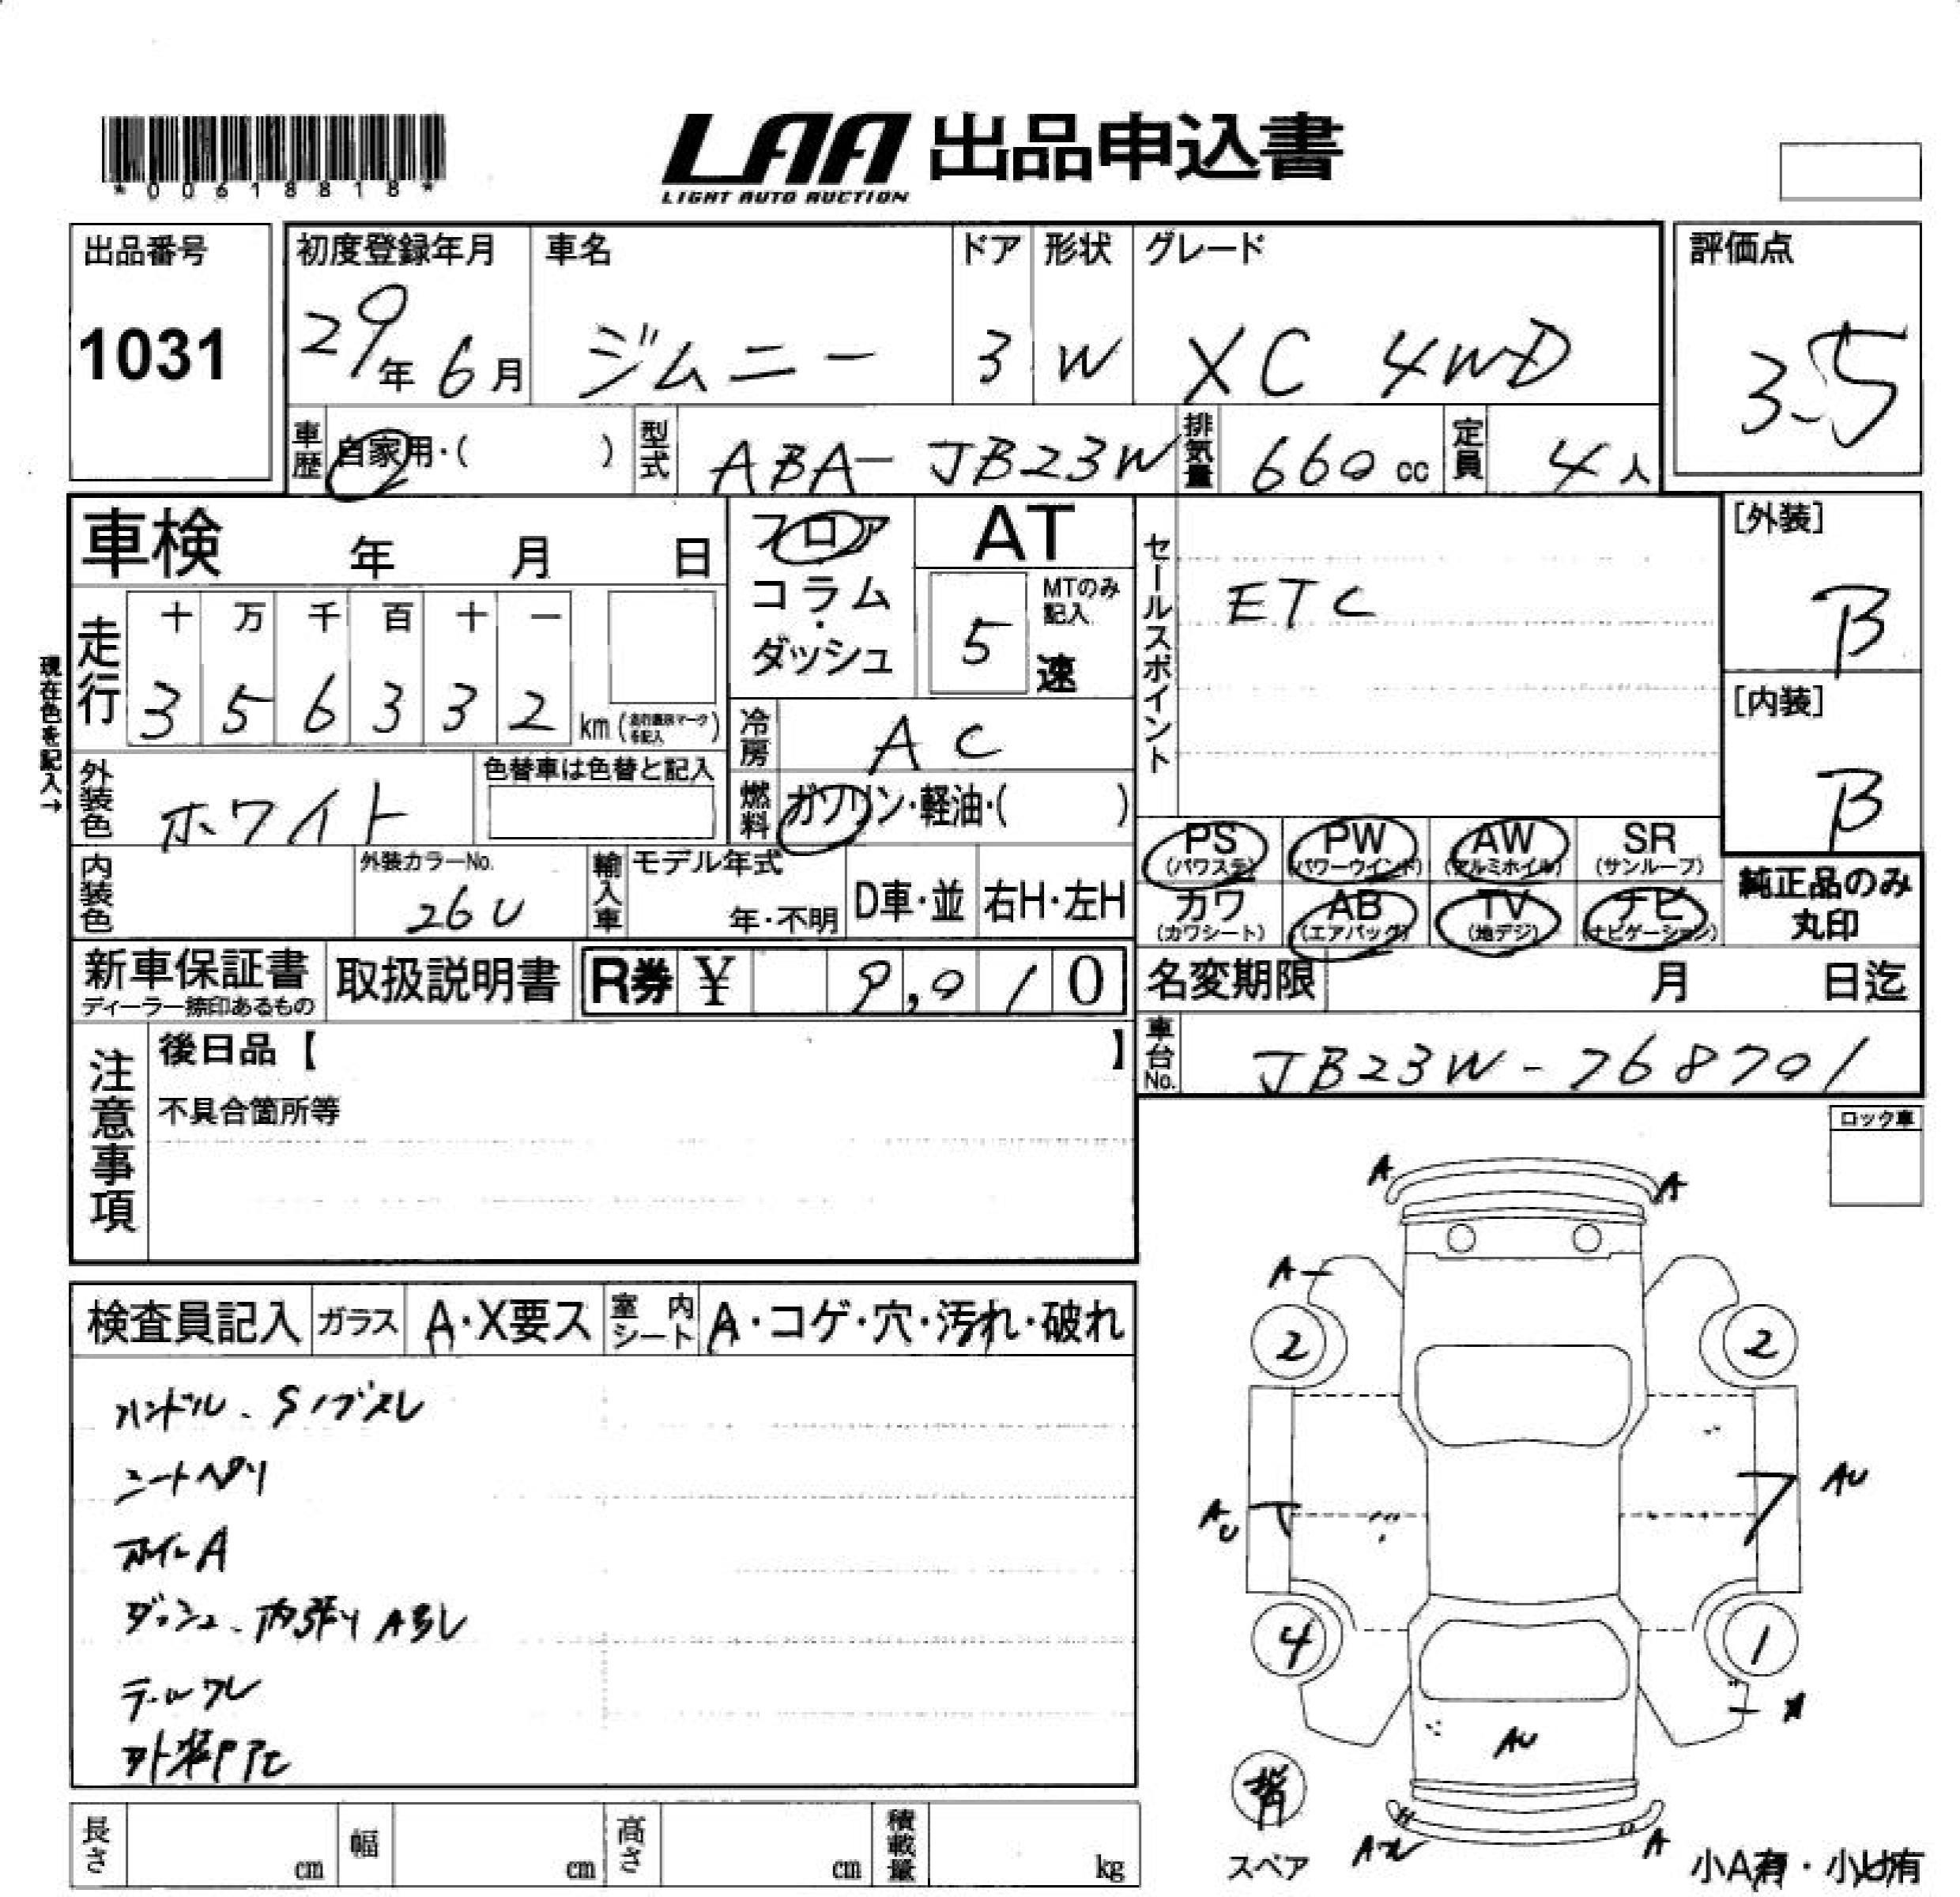 *00618818*
LAA 出品申込書
LIGHT AUTO AUCTION
出品番号
1031
初度登録年月
29年 6月
車名
ジムニー
ドア
3
形状
W
グレード
XC 4WD
評価点
3.5
車歴
自家用・( )
型式
ABA-JB23W
排気量
660 cc
定員
4人
車検 年 月 日
フロア
コラム
・
ダッシュ
AT
5速
MTのみ
記入
セールスポイント
ETC
[外装]
B
[内装]
B
現在色を記入→
走行
十 万 千 百 十 一
3 5 6 3 3 2 km
冷房
AC
外装色
ホワイト
色替車は色替と記入
燃料
ガソリン・軽油・( )
PS
(パワステ)
PW
(パワーウインド)
AW
(アルミホイル)
SR
(サンルーフ)
カワ
(カワシート)
AB
(エアバッグ)
TV
(地デジ)
ナビ
(ナビゲーション)
純正品のみ
丸印
内装色
外装カラーNo.
26U
輸入車
モデル年式
年・不明
D車・並
右H・左H
新車保証書
ディーラー捺印あるもの
取扱説明書
R券 ¥ 9,010
名変期限 月 日迄
注意事項
後日品【 】
不具合箇所等
車台No.
JB23W-768701
ロック車
検査員記入
ガラス
A・X要ス
室内
シート
A・コゲ・穴・汚れ・破れ
ハンドル、Sノブスレ
シートヘタリ
ホイルA
ダッシュ、内張りA多し
テールワレ
A
A
A
2
2
AU
AU
4
1
AU
A
スペア
小A有・小U有
長さ cm
幅 cm
高さ cm
積載量 kg